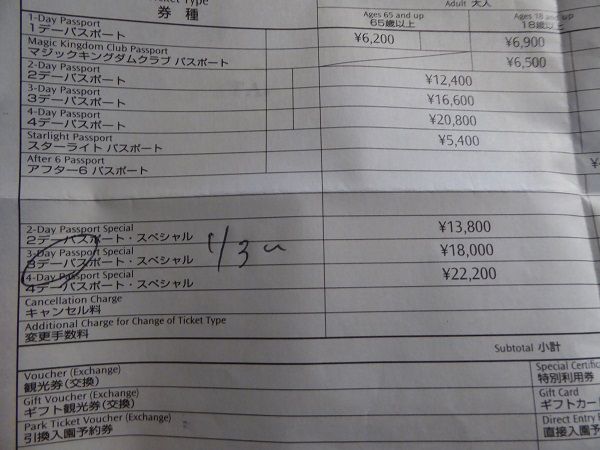 Ticket Type
券種
Adult 大人
Ages 65 and up
65歳以上
Ages 18 and up
18歳以上
1-Day Passport
1デーパスポート
¥6,200
¥6,900
Magic Kingdom Club Passport
マジックキングダムクラブ パスポート
¥6,500
2-Day Passport
2デーパスポート
¥12,400
3-Day Passport
3デーパスポート
¥16,600
4-Day Passport
4デーパスポート
¥20,800
Starlight Passport
スターライト パスポート
¥5,400
After 6 Passport
アフター6 パスポート
2-Day Passport Special
2デーパスポート・スペシャル
¥13,800
3-Day Passport Special
3デーパスポート・スペシャル
1/3~
¥18,000
4-Day Passport Special
4デーパスポート・スペシャル
¥22,200
Cancellation Charge
キャンセル料
Additional Charge for Change of Ticket Type
変更手数料
Subtotal 小計
Voucher (Exchange)
観光券(交換)
Special
特別利用券
Gift Voucher (Exchange)
ギフト観光券(交換)
Gift Card
ギフトカー
Park Ticket Voucher (Exchange)
引換入園予約券
Direct Entry
直接入園予